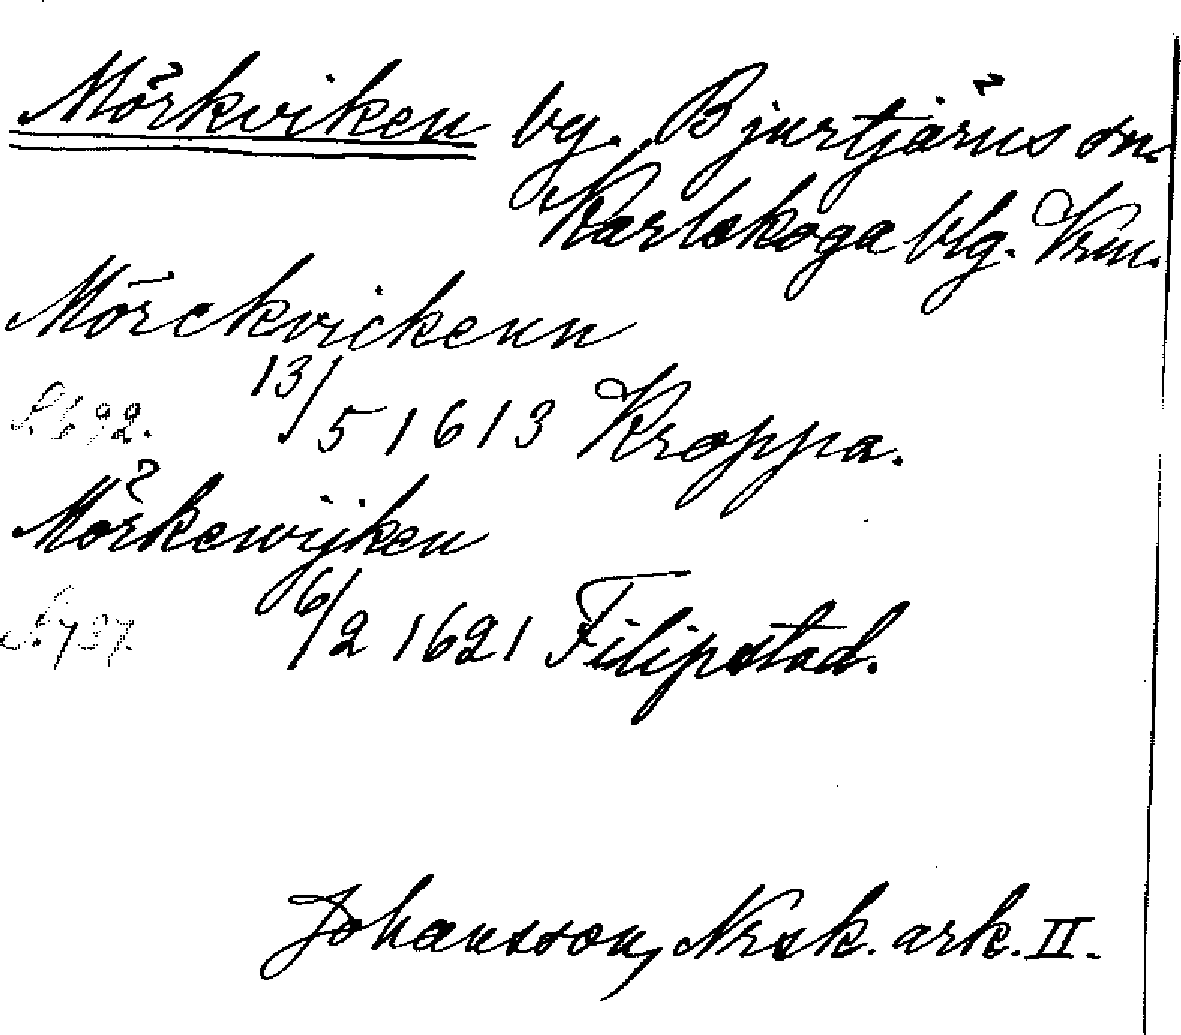 Mörkviken by. Bjurtjärns sn.
Karlskoga blg. Vrm.
Mörckvickenn
13/5 1613 Kroppa.
Mörkewijken
6/2 1621 Filipstad.
Johansson, Nrsk. ark. II.